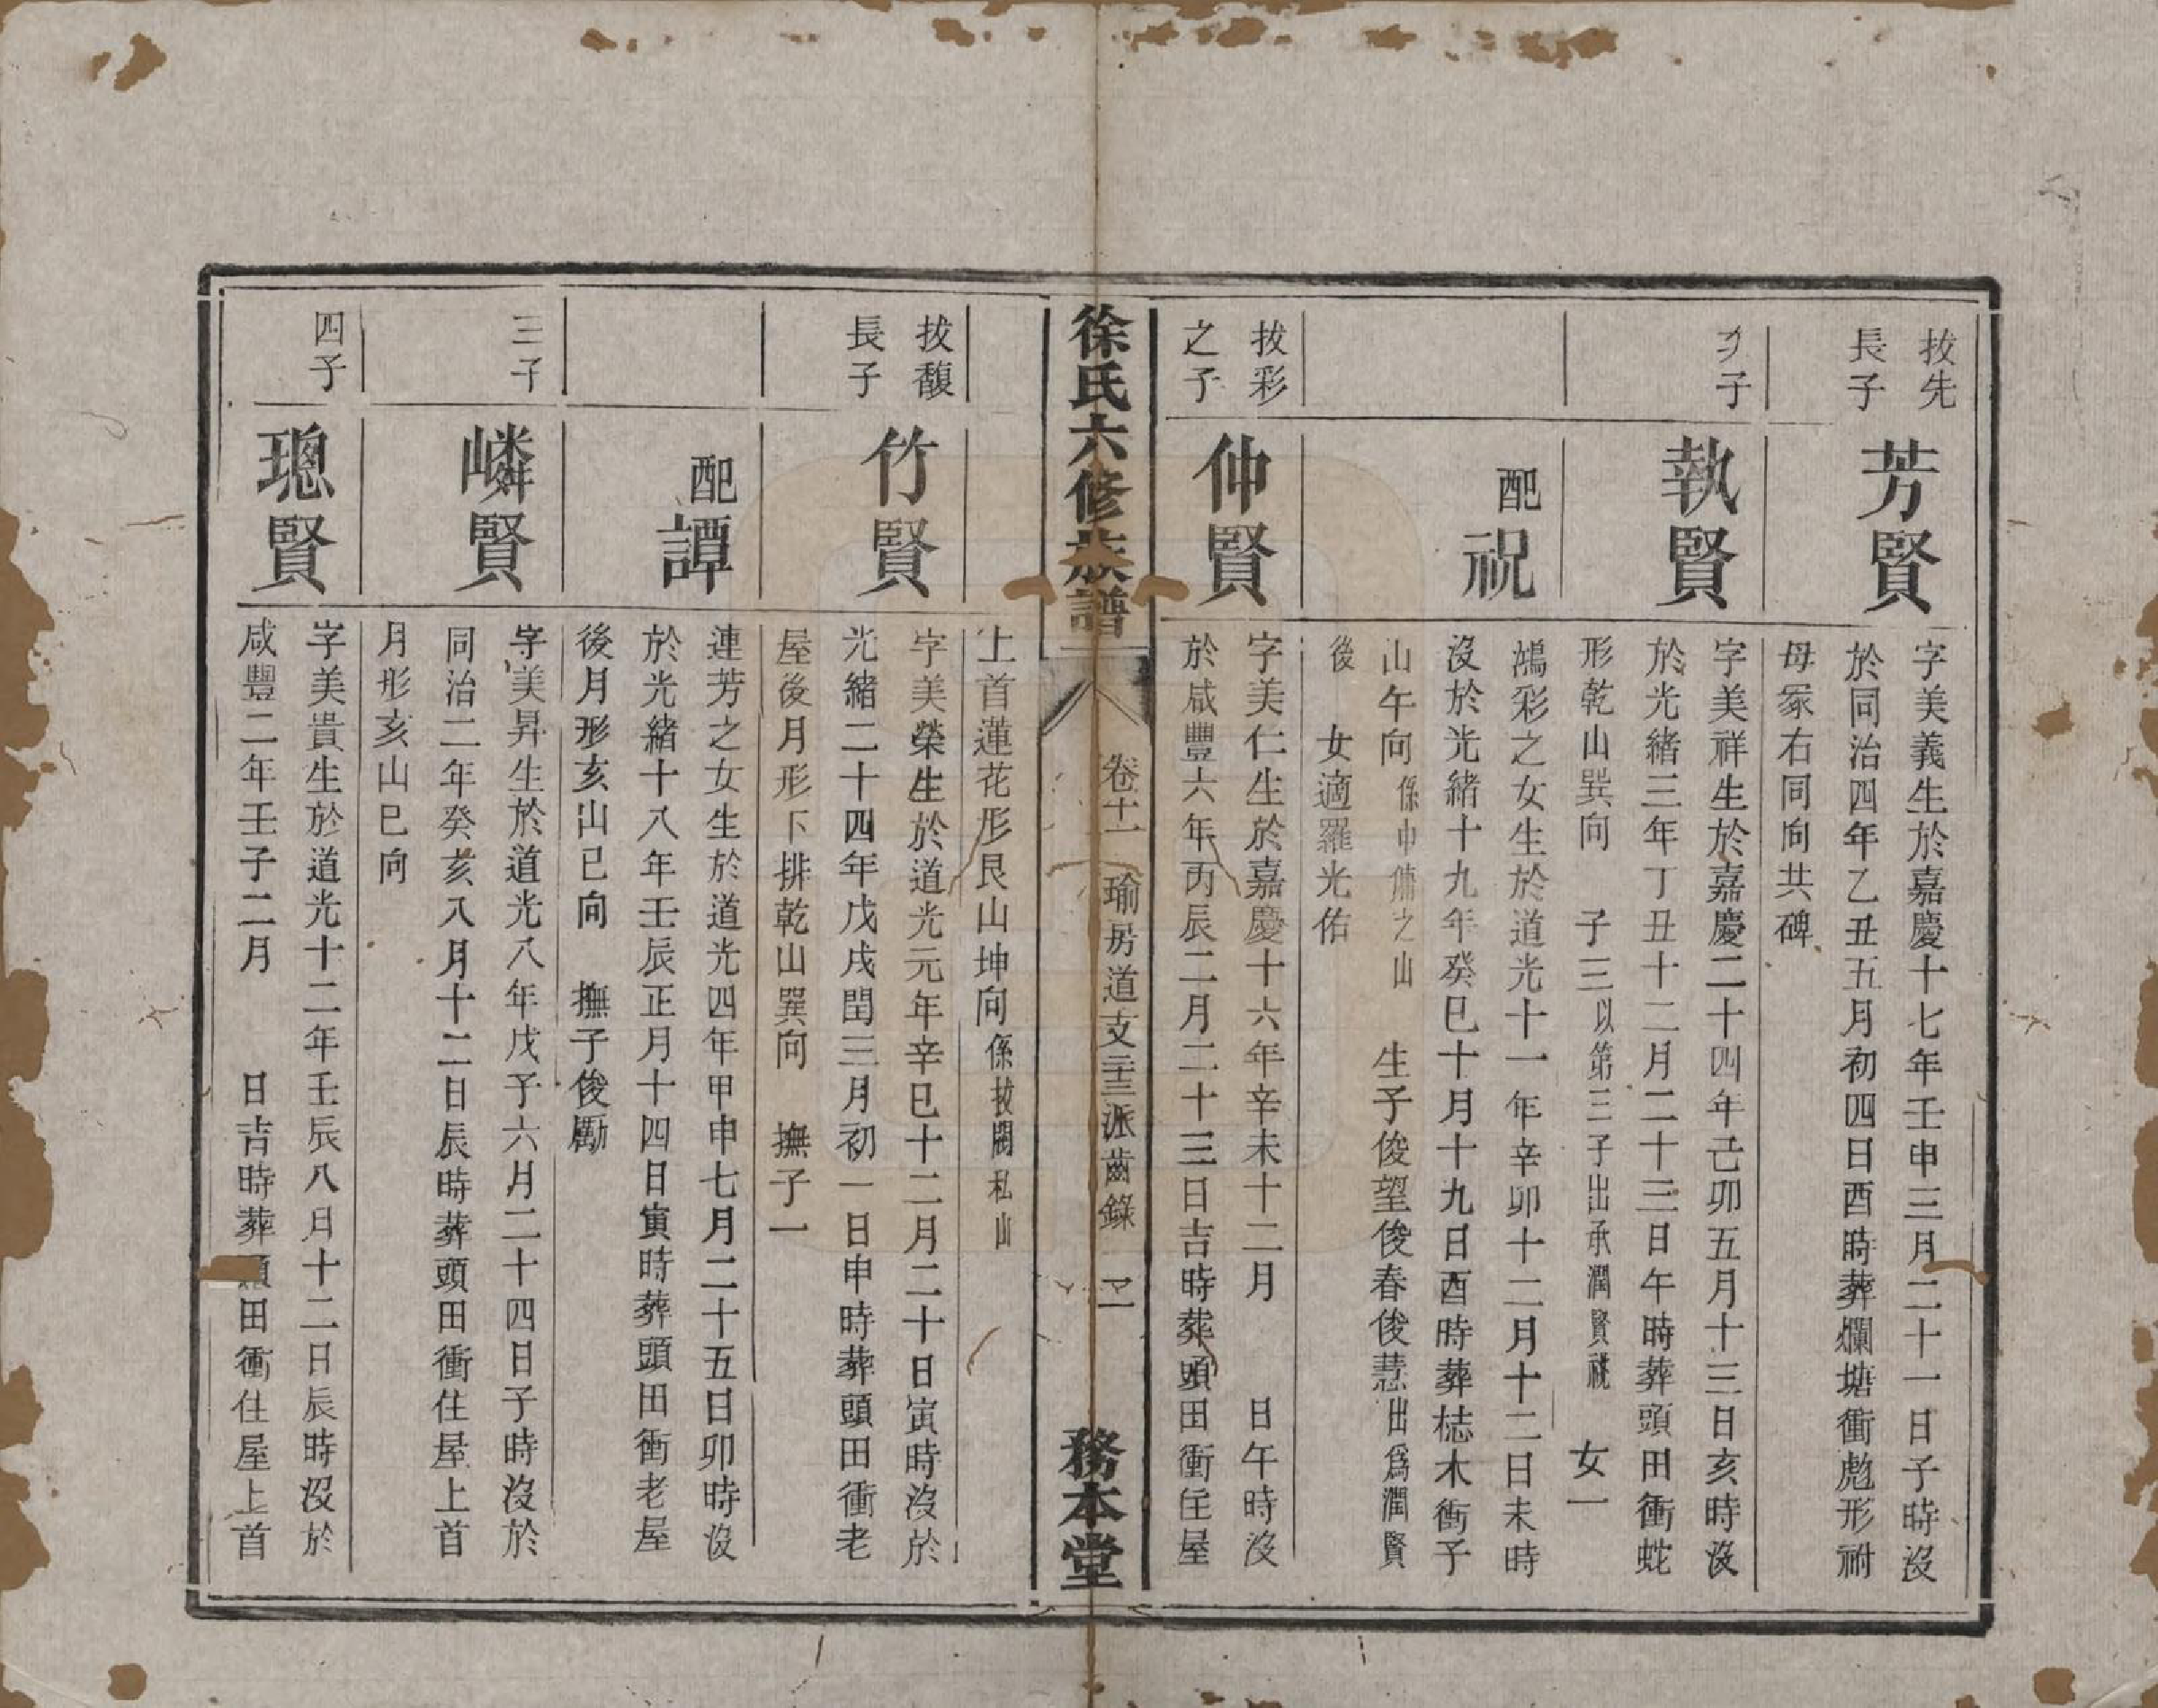 拔先
長子
芳賢
字美義生於嘉慶十七年壬申三月二十一日子時沒
於同治四年乙丑五月初四日酉時葬爛塘衝彪形祔
母冢右同向共碑
次子
執賢
字美祥生於嘉慶二十四年己卯五月十三日亥時沒
於光緒三年丁丑十二月二十三日午時葬頭田衝蛇
形乾山巽向 子三以第三子出承潤賢祧 女一
配祝
鴻彩之女生於道光十一年辛卯十二月十二日未時
沒於光緒十九年癸巳十月十九日酉時葬梽木衝子
山午向係巾傭之山 生子俊望俊春俊慧出爲潤賢
後 女適羅光佑
拔彩
之子
仲賢
字美仁生於嘉慶十六年辛未十二月 日午時沒
於咸豐六年丙辰二月二十三日吉時葬頭田衝住屋
徐氏六修族譜
卷十一 瑜房道支二十三派齒錄 二
務本堂
上首蓮花形艮山坤向係拔閣私山
拔馥
長子
竹賢
字美榮生於道光元年辛巳十二月二十日寅時沒於
光緒二十四年戊戌閏三月初一日申時葬頭田衝老
屋後月形下排乾山巽向 撫子一
配譚
連芳之女生於道光四年甲申七月二十五日卯時沒
於光緒十八年壬辰正月十四日寅時葬頭田衝老屋
後月形亥山巳向 撫子俊勵
三子
嶙賢
字美昇生於道光八年戊子六月二十四日子時沒於
同治二年癸亥八月十二日辰時葬頭田衝住屋上首
月形亥山巳向
四子
璁賢
字美貴生於道光十二年壬辰八月十二日辰時沒於
咸豐二年壬子二月 日吉時葬頭田衝住屋上首